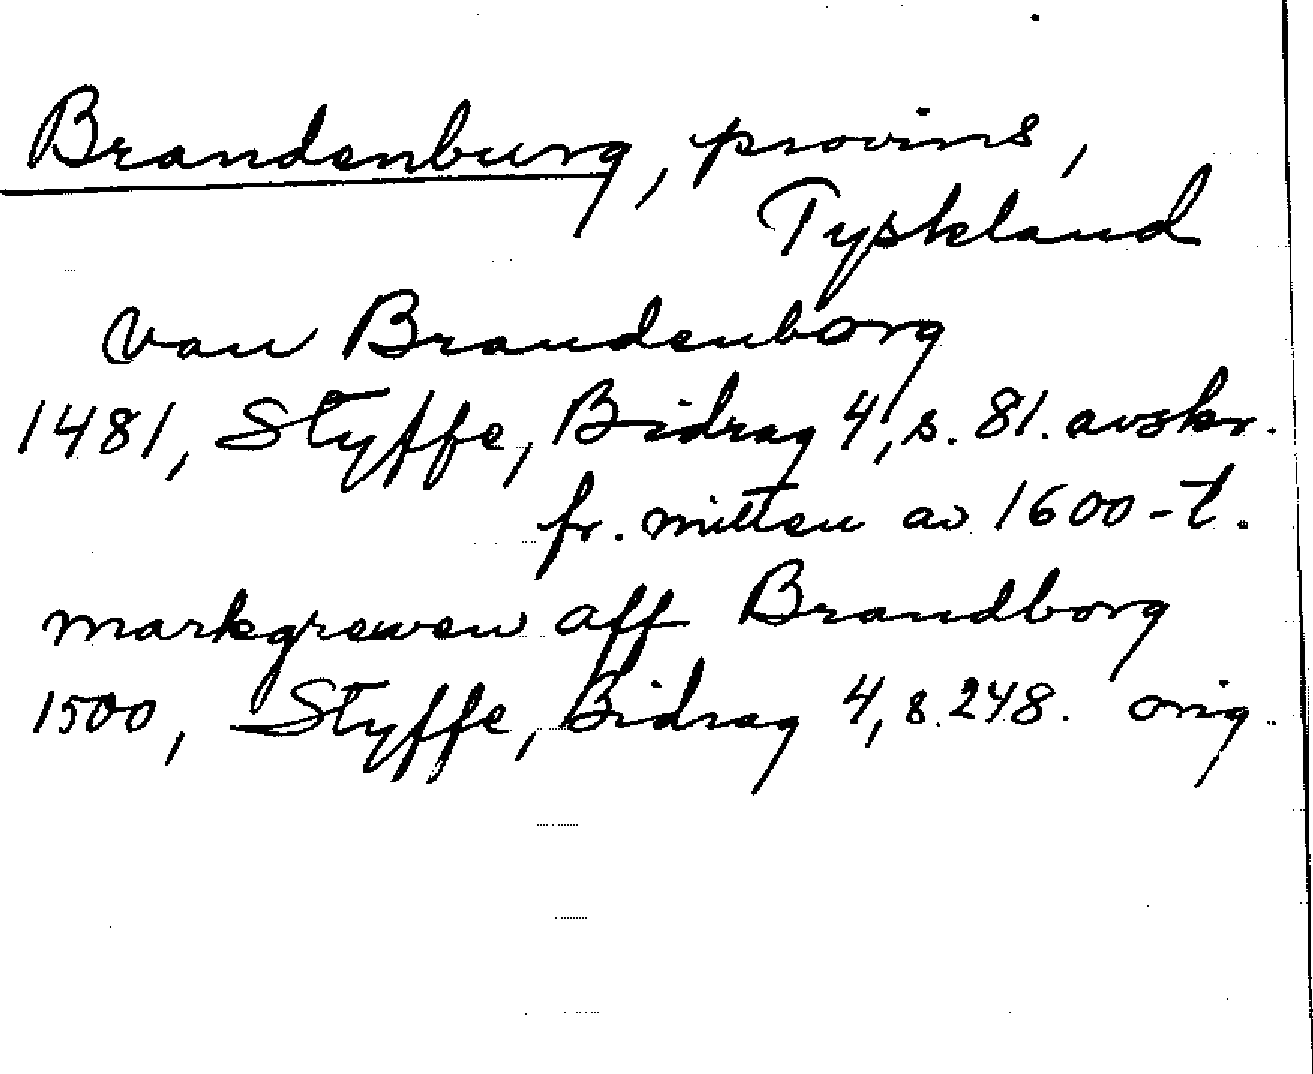 Brandenburg, provins,
Tyskland
van Brandenborg
1481, Styffe, Bidrag 4, s. 81. avskr.
fr. mitten av 1600-t.
markgrewen aff Brandborg
1500, Styffe, Bidrag 4, s. 248. orig.